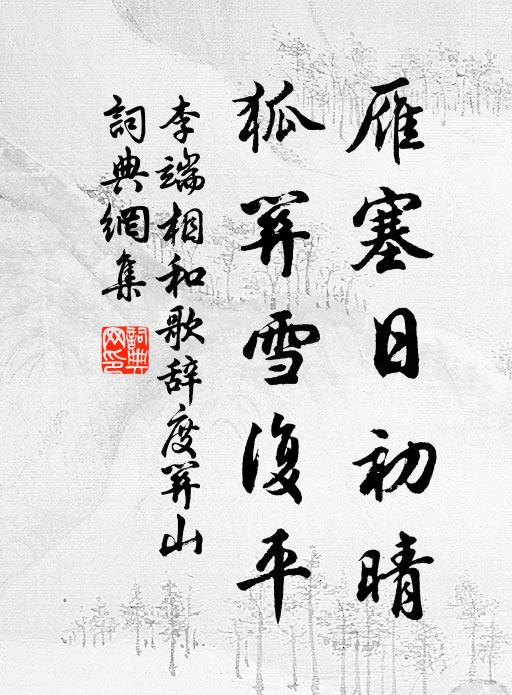 雁塞日初晴
狐關雪復平
李端相和歌辞度關山
詞典網集
詞典
网印